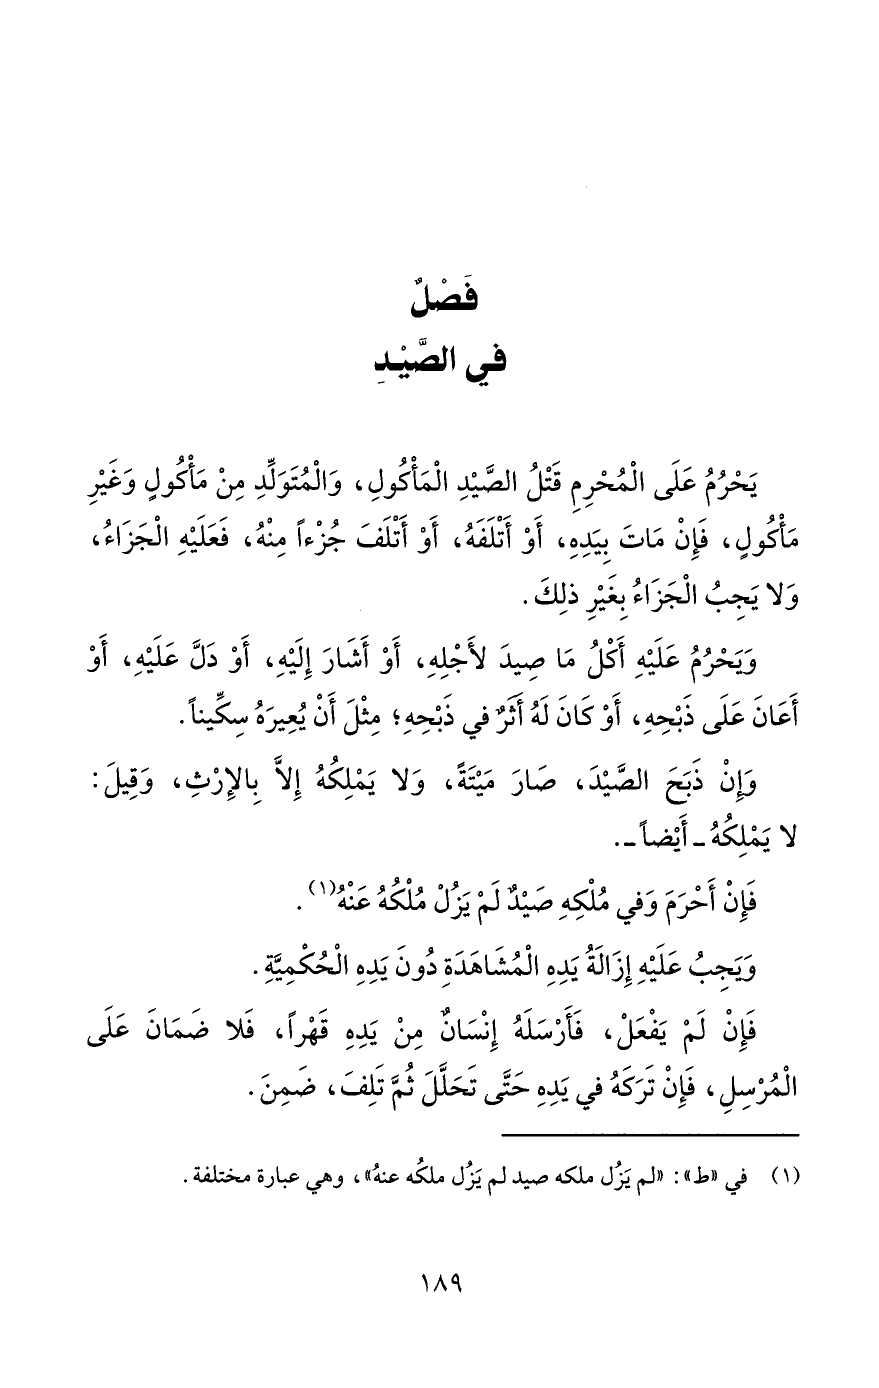 فَصْلٌ
في الصَّيْدِ
يَحْرُمُ عَلَى الْمُحْرِمِ قَتْلُ الصَّيْدِ الْمَأْكُولِ، وَالْمُتَوَلِّدِ مِنْ مَأْكُولٍ وَغَيْرِ
مَأْكُولٍ، فَإِنْ مَاتَ بِيَدِهِ، أَوْ أَتْلَفَهُ، أَوْ أَتْلَفَ جُزْءاً مِنْهُ، فَعَلَيْهِ الْجَزَاءُ،
وَلا يَجِبُ الْجَزَاءُ بِغَيْرِ ذلِكَ.
وَيَحْرُمُ عَلَيْهِ أَكْلُ مَا صِيدَ لأَجْلِهِ، أَوْ أَشَارَ إِلَيْهِ، أَوْ دَلَّ عَلَيْهِ، أَوْ
أَعَانَ عَلَى ذَبْحِهِ، أَوْ كَانَ لَهُ أَثَرٌ في ذَبْحِهِ؛ مِثْلَ أَنْ يُعِيرَهُ سِكِّيناً.
وَإِنْ ذَبَحَ الصَّيْدَ، صَارَ مَيْتَةً، وَلا يَمْلِكُهُ إِلاَّ بِالإِرْثِ، وَقِيلَ:
لا يَمْلِكُهُ ـ أَيْضاً ـ.
فَإِنْ أَحْرَمَ وَفي مُلْكِهِ صَيْدٌ لَمْ يَزُلْ مُلْكُهُ عَنْهُ(١).
وَيَجِبُ عَلَيْهِ إِزَالَةُ يَدِهِ الْمُشَاهَدَةِ دُونَ يَدِهِ الْحُكْمِيَّةِ.
فَإِنْ لَمْ يَفْعَلْ، فَأَرْسَلَهُ إِنْسَانٌ مِنْ يَدِهِ قَهْراً، فَلا ضَمَانَ عَلَى
الْمُرْسِلِ، فَإِنْ تَرَكَهُ في يَدِهِ حَتَّى تَحَلَّلَ ثُمَّ تَلِفَ، ضَمِنَ.
(١) في «ط»: «لم يَزُل ملكه صيد لم يَزُل ملكُه عنهُ»، وهي عبارة مختلفة.
١٨٩